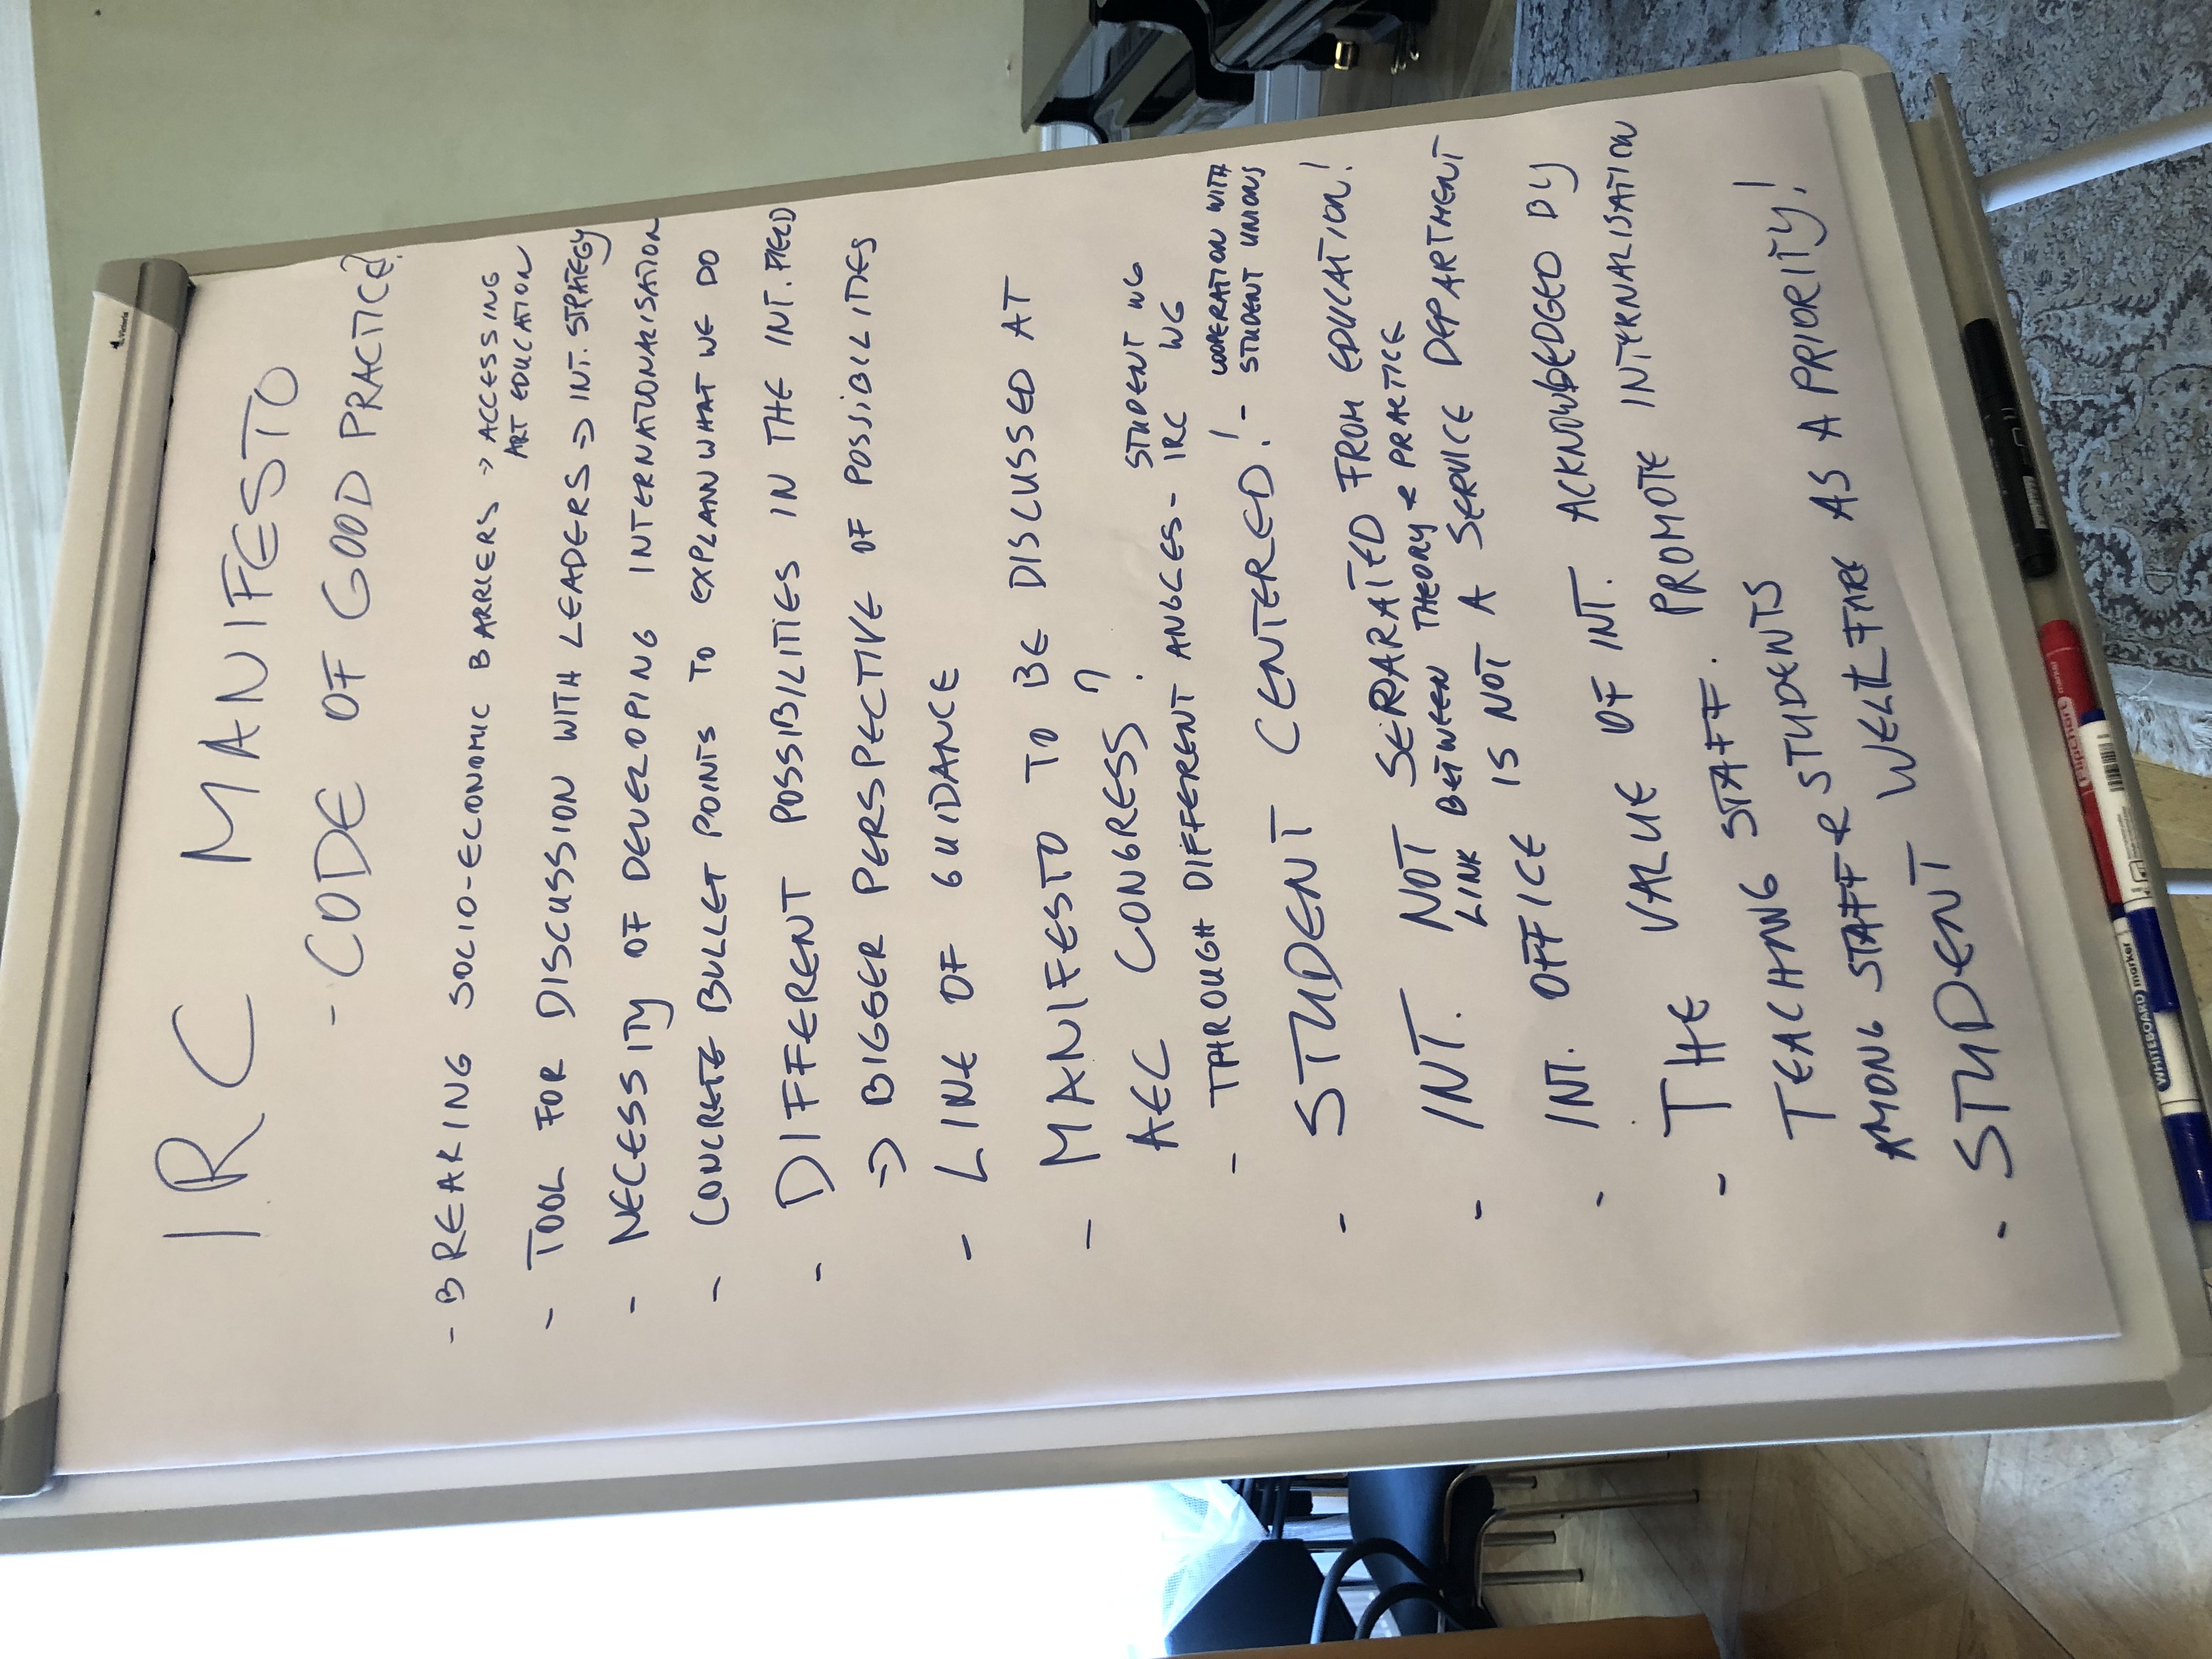 IRC MANIFESTO
- CODE OF GOOD PRACTICE?
- BREAKING SOCIO-ECONOMIC BARRIERS -> ACCESSING
ART EDUCATION
- TOOL FOR DISCUSSION WITH LEADERS => INT. STRATEGY
- NECESSITY OF DEVELOPING INTERNATIONARISATION
- CONCRETE BULLET POINTS TO EXPLANN WHAT WE DO
- DIFFERENT POSSIBILITIES IN THE INT. FIELD
=> BIGGER PERSPECTIVE OF POSSIBILITIES
- LINE OF GUIDANCE
- MANIFESTO TO BE DISCUSSED AT
AEC CONGRESS?
- THROUGH DIFFERENT ANGLES - STUDENT WG
IRC WG
- STUDENT CENTERED! - COOPERATION WITH
STUDENT UNIONS
- INT. NOT SERPARATED FROM EDUCATION!
LINK BETWEEN THEORY & PRACTICE
- INT. OFFICE IS NOT A SERVICE DEPARTMENT
- THE VALUE OF INT. ACKNOWLEDGED BY
TEACHING STAFF. PROMOTE INTERNALISATION
AMONG STAFF & STUDENTS
- STUDENT WELLFARE AS A PRIORITY!
Victoria
Flipchart marker
WHITEBOARD marker